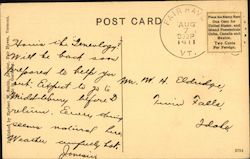 POST CARD
FAIR HAVEN
AUG
1911
VT.
Place the Stamp Here
One Cent for
United States, and
Island Possessions,
Cuba, Canada and
Mexico.
Two Cents
For Foreign.
How's the Genealogy?
Will be back soon
prepared to help you
out. Expect to go to
Middlebury before I
return. Every thing
seems natural here.
Weather awfully hot.
Mr. W. H. Eldridge,
Twin Falls
Idaho